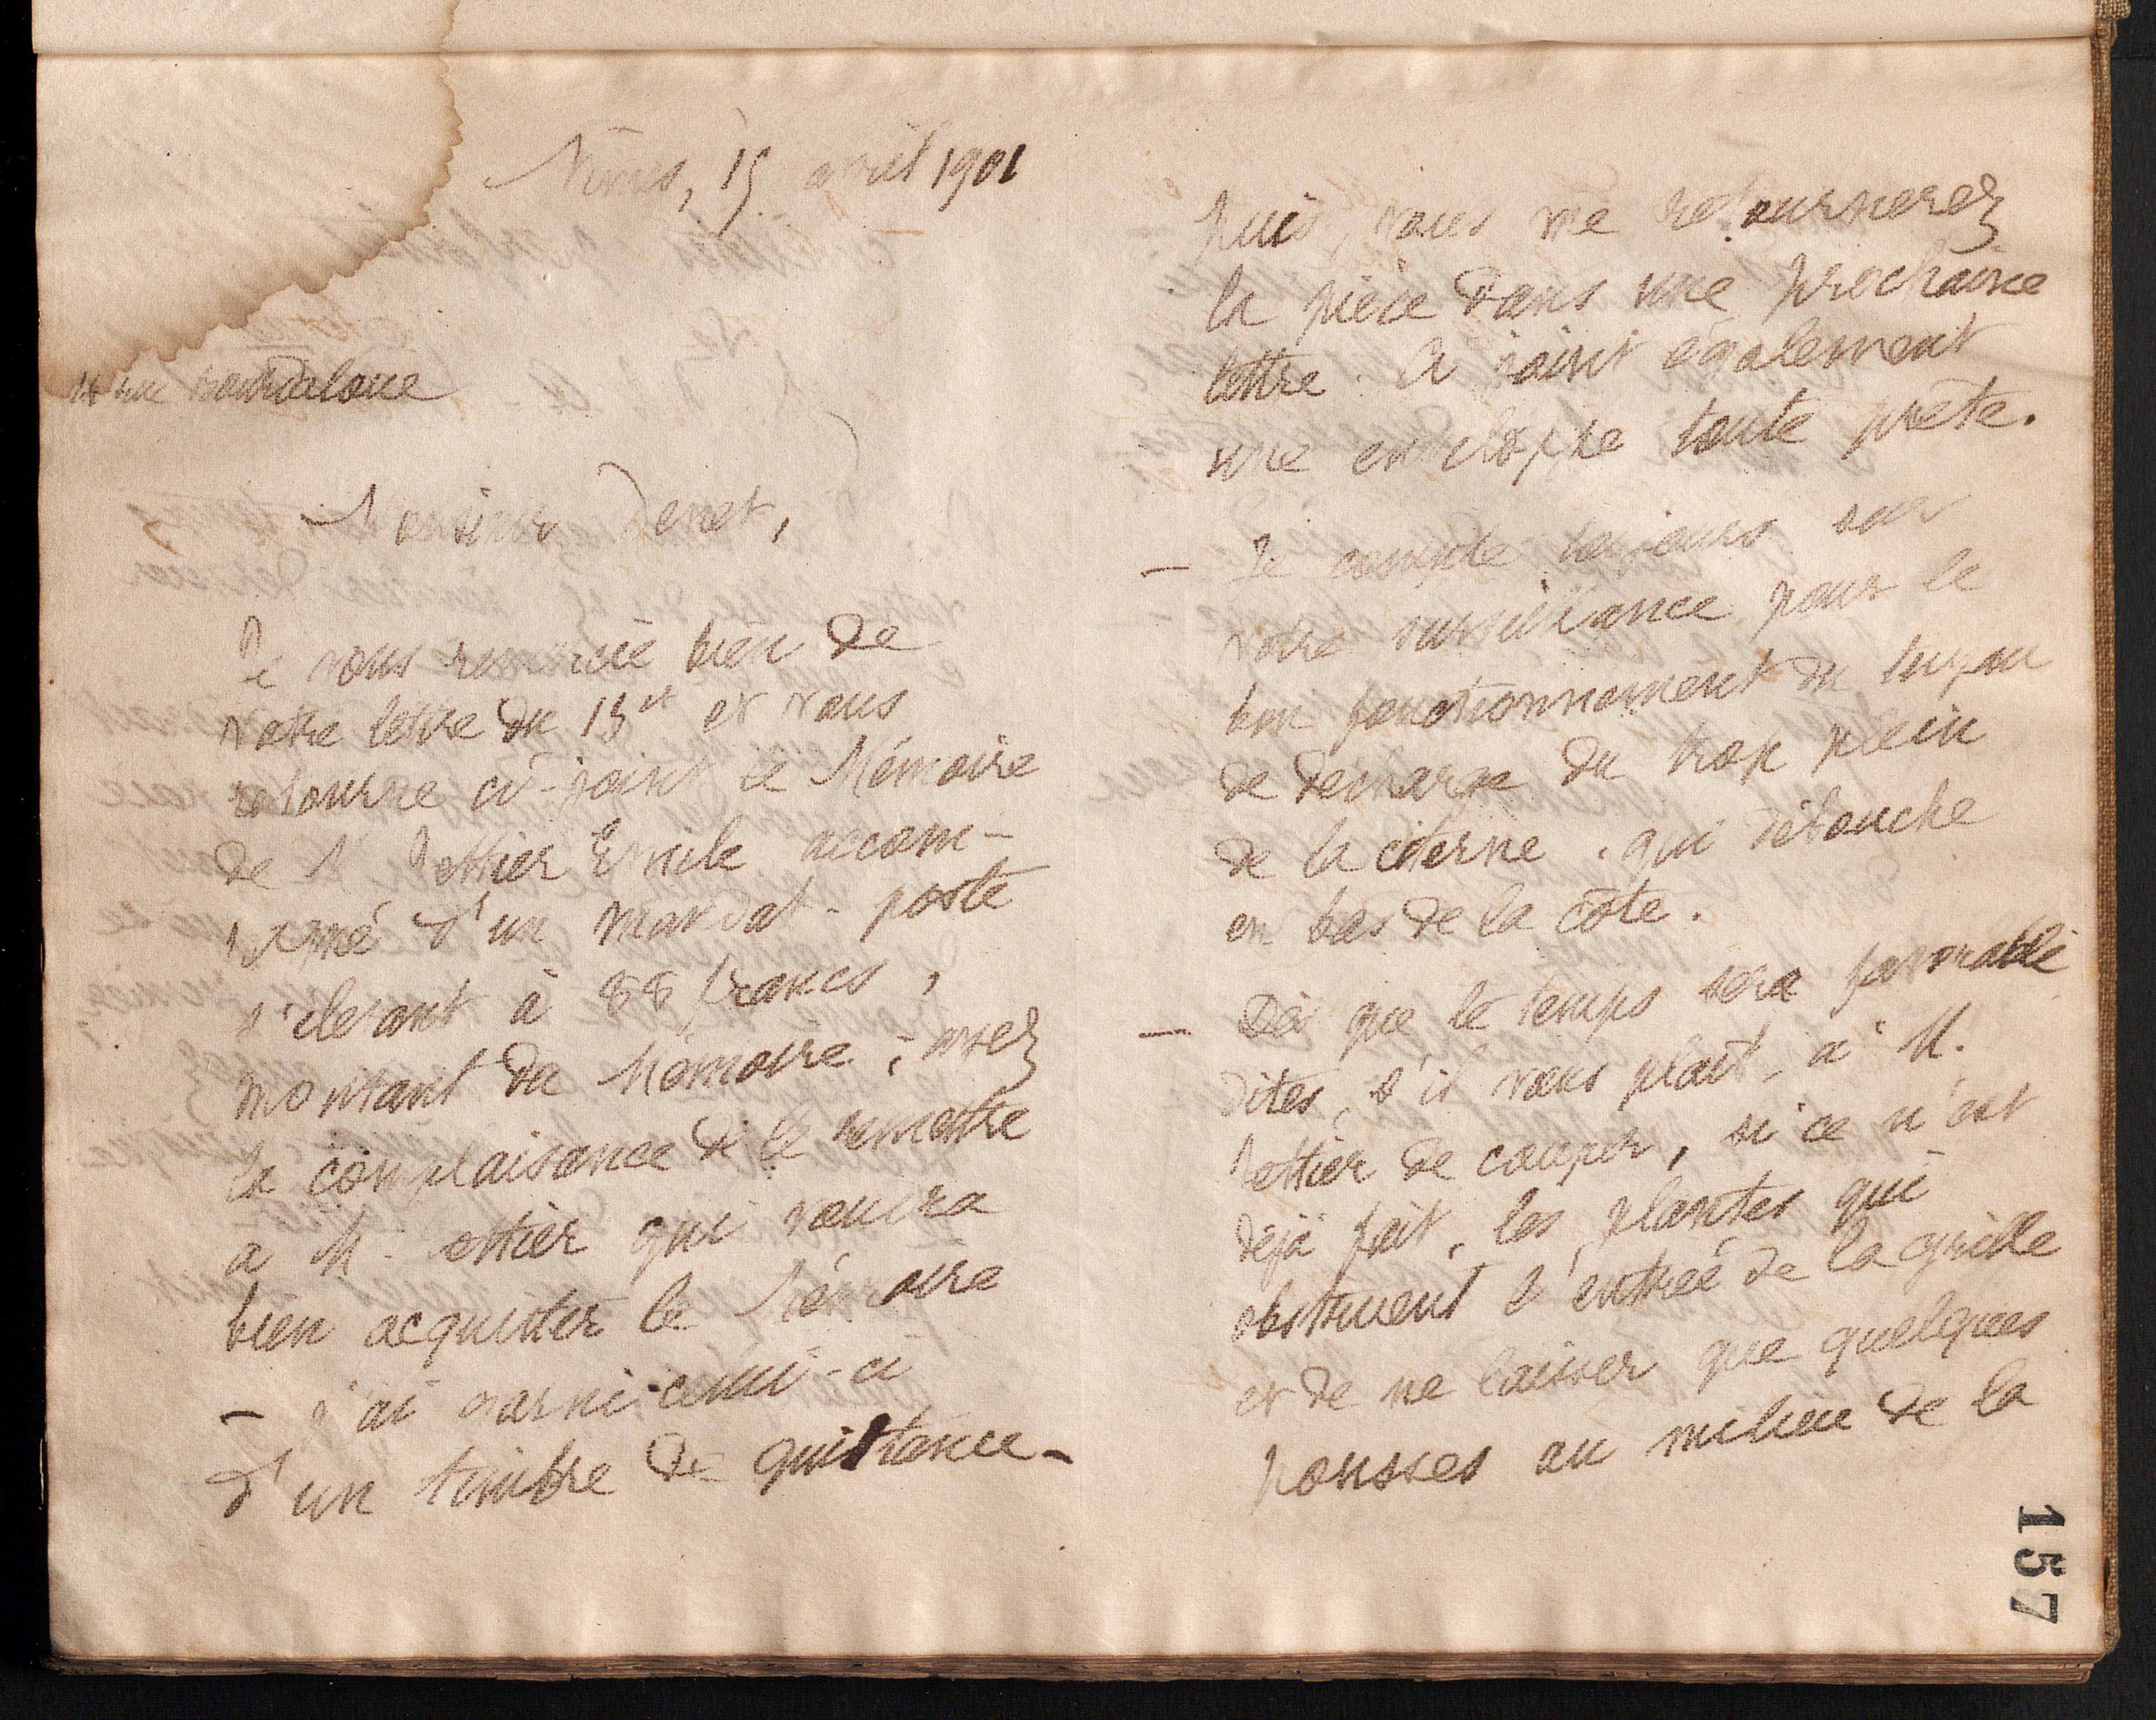 Nîmes, 15 avril 1901
14 rue Bourdaloue
Monsieur Denet,
Je vous remercie bien de
votre lettre du 13 ct et vous
retourne ci-joint le Mémoire
de M Pottier Emile accom-
pagné d'un mandat-poste
s'élevant à 88 francs,
montant du Mémoire ; ayez
la complaisance de le remettre
à M. Pottier qui voudra
bien acquitter le Mémoire
- j'ai garni celui-ci
d'un timbre de quittance -
puis, vous me retournerez
la pièce dans une prochaine
lettre. Ci joint également
une enveloppe toute prête.
- Je compte toujours sur
votre surveillance pour le
bon fonctionnement du tuyau
de décharge du trop plein
de la citerne, qui débouche
en bas de la côte.
- Dès que le temps sera favorable
dites, s'il vous plait, à M.
Pottier de couper, si ce n'est
déjà fait, les plantes qui
obstruent l'entrée de la grille
et de ne laisser que quelques
pousses au milieu de la
157